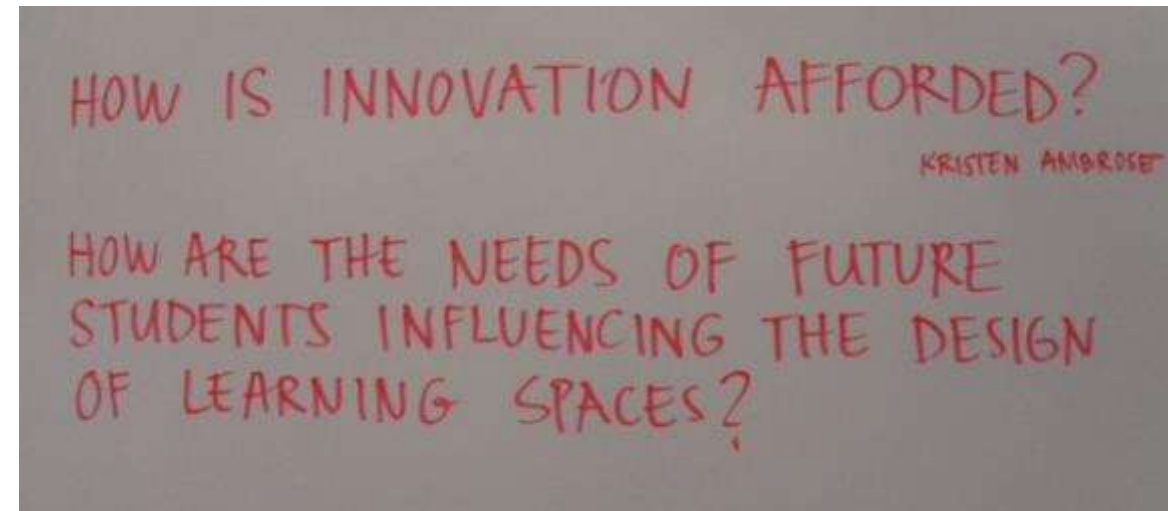 HOW IS INNOVATION AFFORDED?
KRISTEN AMBROSE
HOW ARE THE NEEDS OF FUTURE
STUDENTS INFLUENCING THE DESIGN
OF LEARNING SPACES?